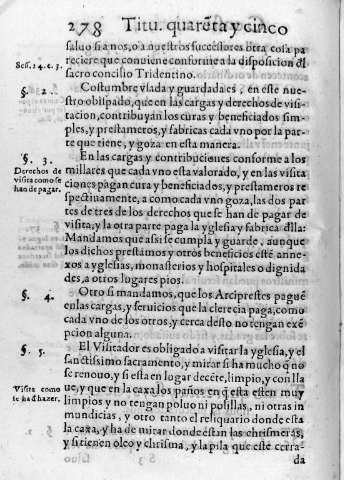 278 Titu. quarēta y cinco
saluo si a nos, o a nuestros successores otra cosa pa
reciere que conuiene conforme a la disposicion đl
Sess. 24. c. 3.
sacro concilio Tridentino.
§. 2.
Costumbre vsada y guardada es, en este nue-
stro obispado, que en las cargas y derechos de visi-
tacion, contribuyan los curas y beneficiados sim-
ples, y prestameros, y fabricas cada vno por la par
te que tiene, y goza en esta manera.
§. 3.
En las cargas y contribuciones conforme a los
Derechos de
visita como se
han de pagar.
millares que cada vno esta valorado, y en las visita
ciones pagan cura y beneficiados, y prestameros re
spectiuamente, a como cada vno goza, las dos par
tes de tres de los derechos que se han de pagar de
visita, y la otra parte paga la yglesia y fabrica đlla:
Mandamos que assi se cumpla y guarde, aunque
los dichos prestamos y otros beneficios esté anne-
xos a yglesias, monasterios y hospitales o dignida
des, a otros lugares pios.
§. 4.
Otro si mandamos, que los Arciprestes pagué
en las cargas, y seruicios que la clerecia paga, como
cada vno de los otros, y cerca desto no tengan exé
pcion alguna.
§. 5.
El Visitador es obligado a visitar la yglesia, y el
sanctissimo sacramento, y mirar si ha mucho q̄ no
se renouo, y si esta en lugar decéte, limpio, y con lla
Visita como
se ha đ hazer.
ue, y que en la caxa los paños en q̄ esta esten muy
limpios y no tengan poluo ni polillas, ni otras in
mundicias, y otro tanto el reliquario donde esta
la caxa, y ha de mirar donde estan las chrismeras,
y si tienen oleo y chrisma, y la pila que este cerra-
da